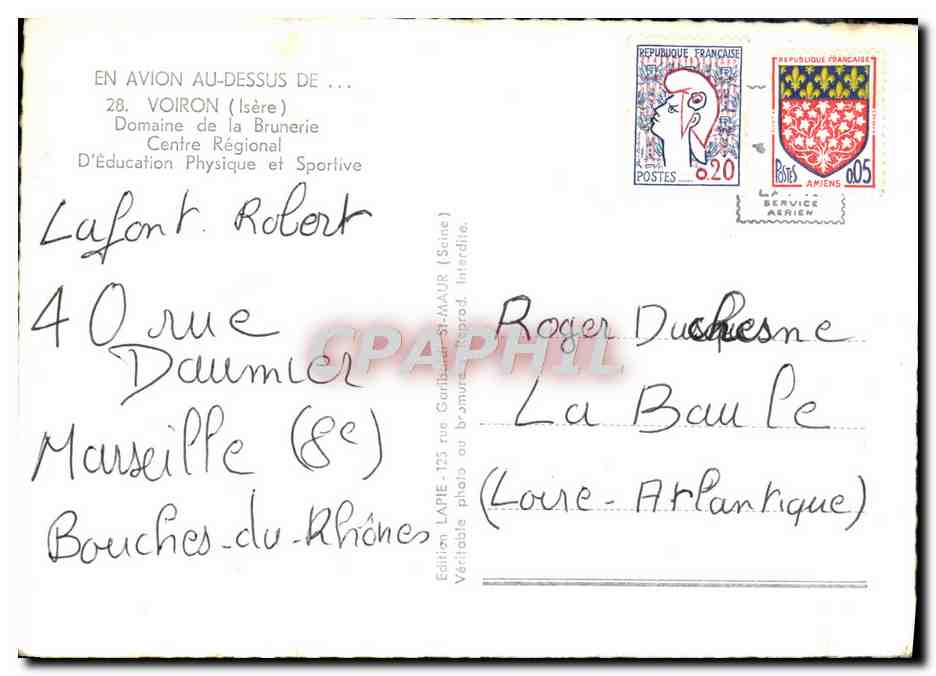 EN AVION AU-DESSUS DE ...
28. VOIRON (Isère)
Domaine de la Brunerie
Centre Régional
D'Éducation Physique et Sportive
Lafont Robert
40 rue
Daumier
Marseille (8e)
Bouches-du-Rhônes
Edition LAPIE - 125 rue Garibaldi St-MAUR (Seine)
Véritable photo au bromure Reprod. Interdite.
REPUBLIQUE FRANÇAISE
POSTES 0.20
REPUBLIQUE FRANÇAISE
POSTES 0.05
AMIENS
SERVICE
AERIEN
Roger Duchesne
La Baule
(Loire-Atlantique)
CPAPHIL